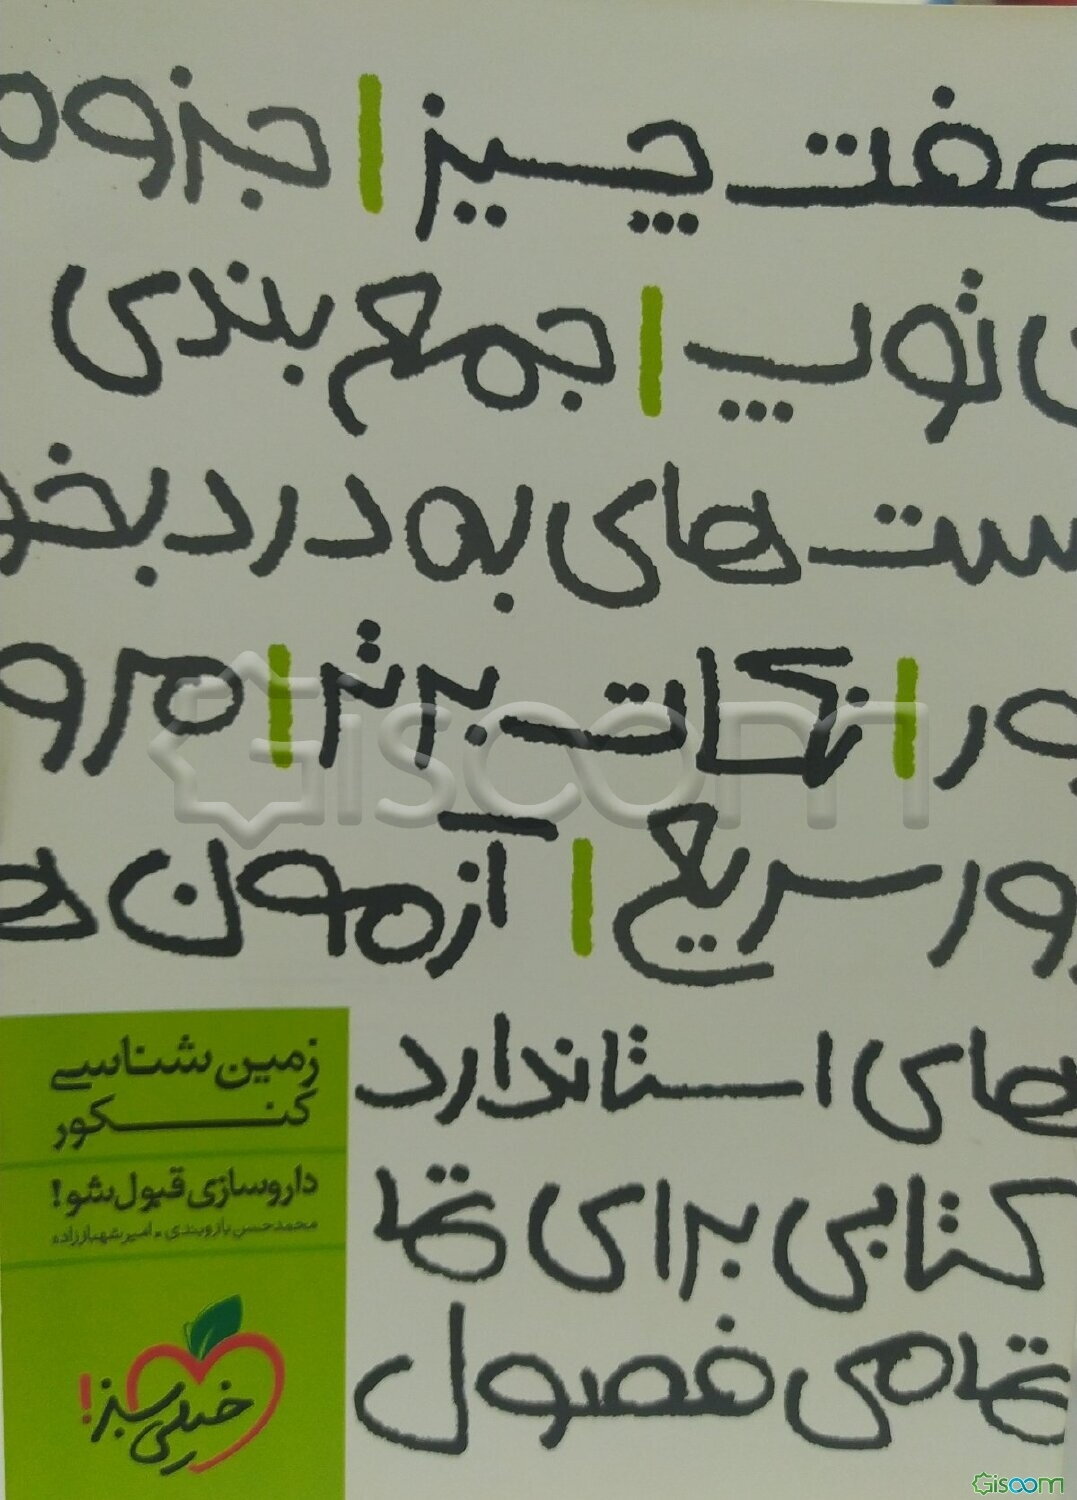 هفت چیز | جزوه
ی توپ | جمع بندی
ست های به درد بخو
ور | نکات برتر | مرو
رور سریع | آزمون ها
های استاندارد
کتابی برای تما
تمامی فصول
زمین شناسی
کنکور
داروسازی قبول شو!
محمدحسن بازوبندی . امیر شهباززاده
خیلی سبز!
Gisoom
Gisoom